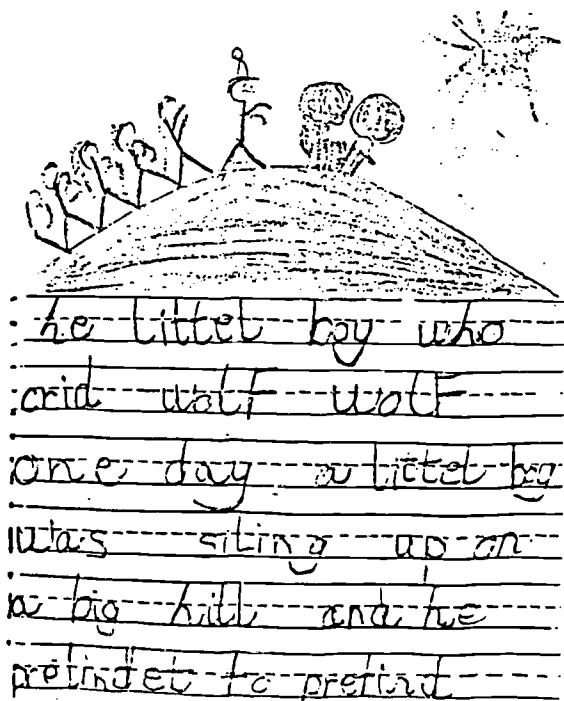 he littel boy who
crid wolf wolf
one day a littel boy
was siting up on
a big hill and he
pretindet to pretind